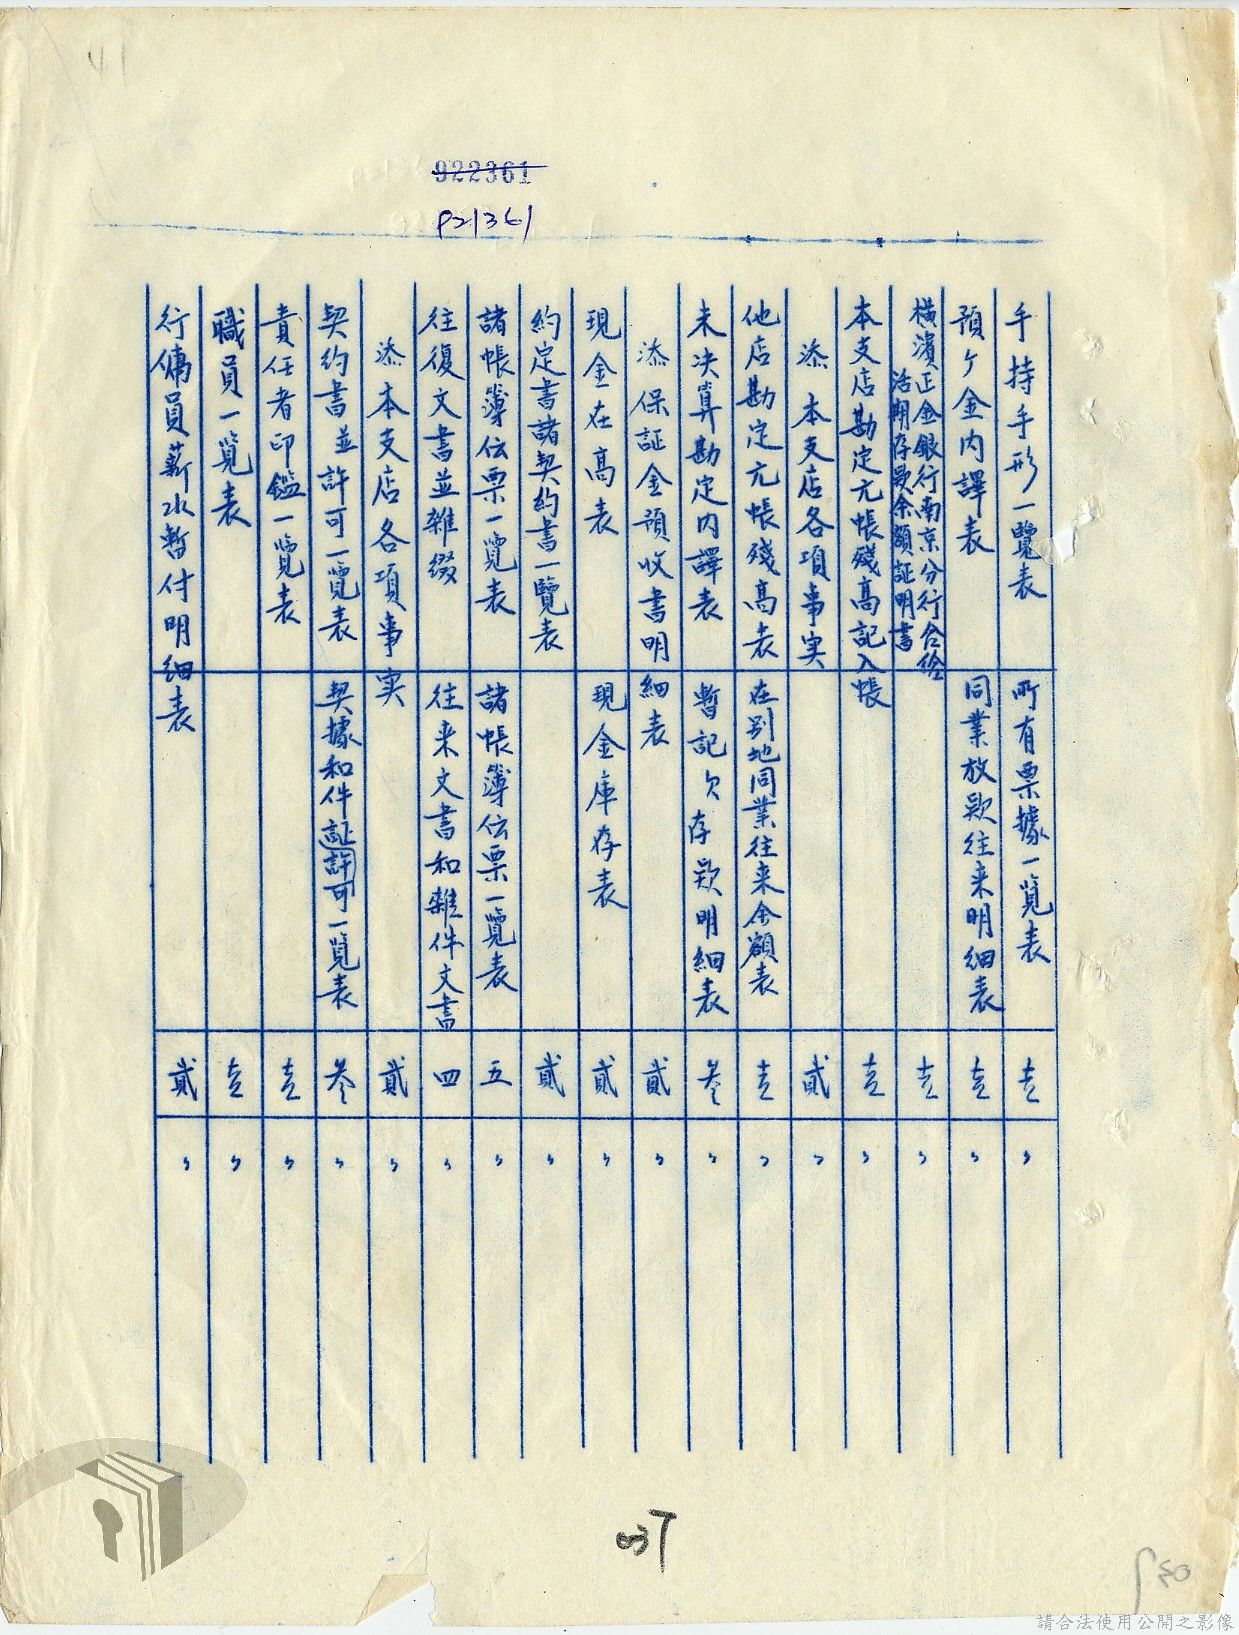 41
922361
P21361
手持手形一覽表 所有票據一覧表 壱 〃
預ケ金内譯表 同業放款往来明細表 壱 〃
橫濱正金銀行南京分行合給
活期存款余額証明書 壱 〃
本支店勘定元帳殘高記入帳 壱 〃
添本支店各項事実 貳 〃
他店勘定元帳殘高表 在别地同業往来余額表 壱 〃
未决算勘定内譯表 暫記欠存款明細表 叁 〃
添保証金預收書明細表 貳 〃
現金在高表 現金庫存表 貳 〃
約定書諸契約書一覽表 貳 〃
諸帳簿伝票一覧表 諸帳簿伝票一覧表 五 〃
往復文書並雜綴 往来文書和雜件文書 四 〃
添本支店各項事実 貳 〃
契約書並許可一覧表 契據和件証許可一覧表 叁 〃
責任者印鑑一覧表 壱 〃
職員一覧表 壱 〃
行傭員薪水暫付明細表 貳 〃
037
請合法使用公開之影像